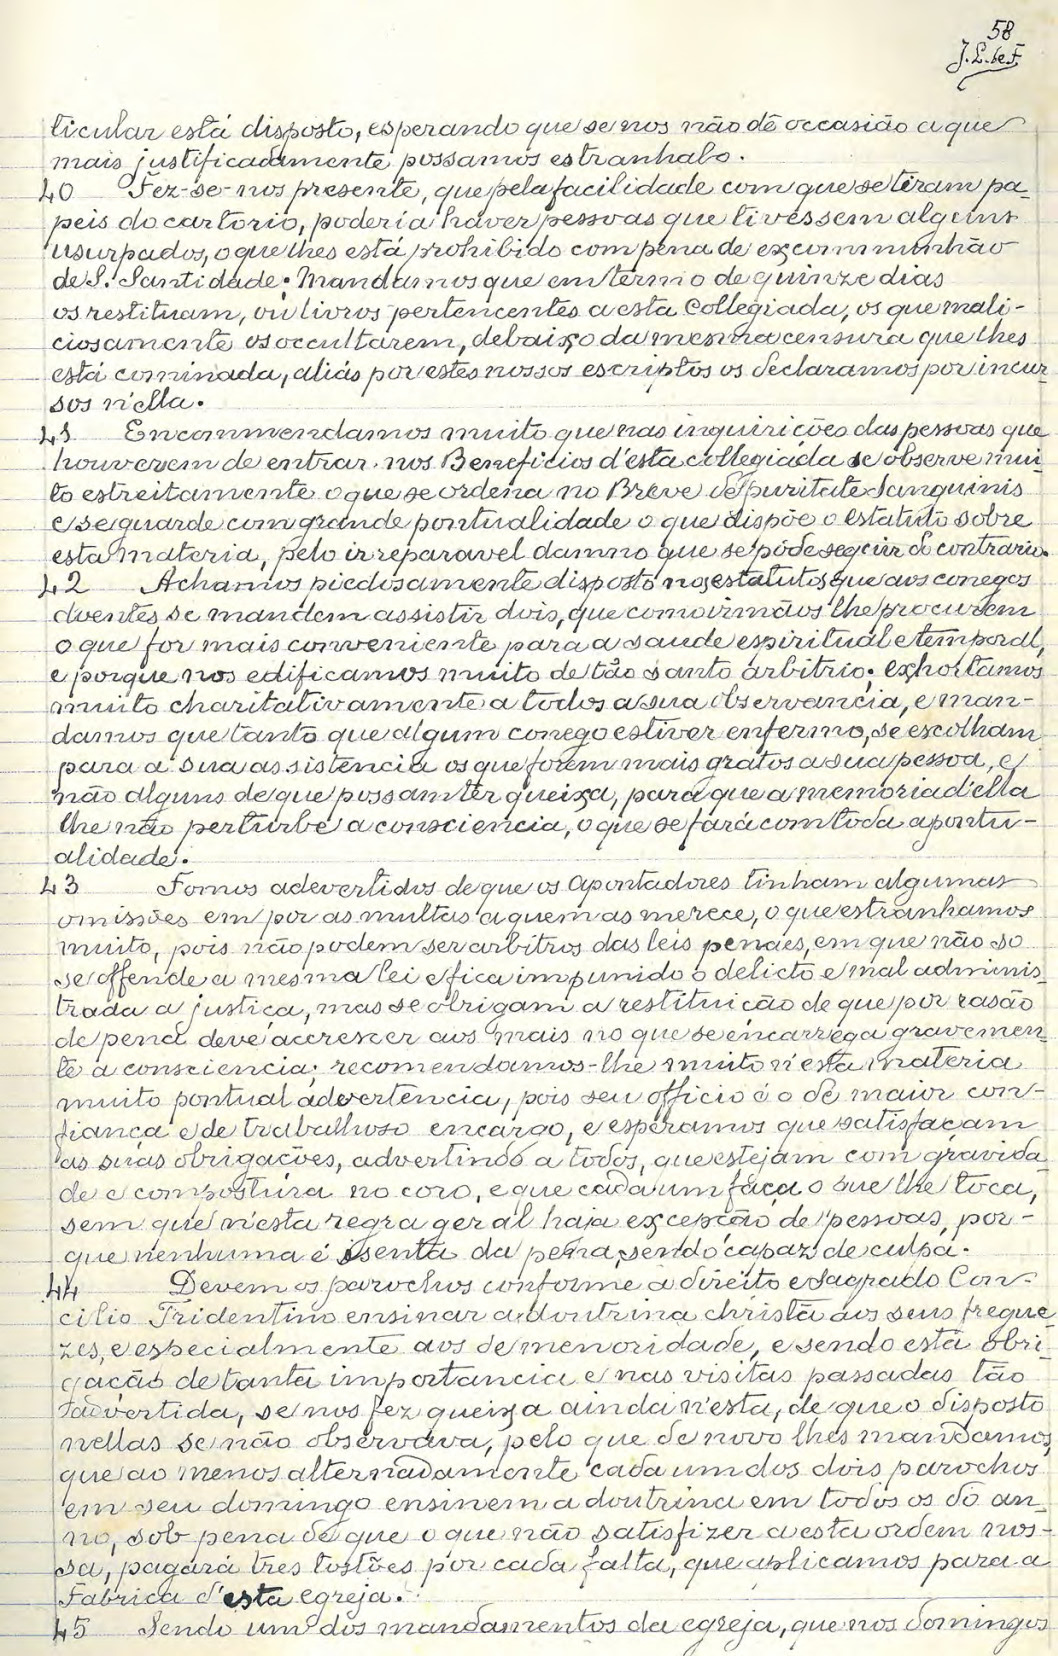 58
J. L. de F.
ticular está disposto, esperando que se nos não dê occasião a que
mais justificadamente possamos estranhalo.
40 Fez-se-nos presente, que pela facilidade com que se tiram pa-
peis do cartorio, poderia haver pessoas que tivessem alguns
usurpados, o que lhes está prohibido com pena de excommunhão
de S. Santidade; Mandamos que em termo de quinze dias
os restituam, ou livros pertencentes a esta Collegiada, os que mali-
ciosamente os occultarem, debaixo da mesma censura que lhes
está cominada, aliás por estes nossos escriptos os declaramos por incur-
sos n'ella.
41 Encommendamos muito que nas inquirições das pessoas que
houverem de entrar nos Beneficios d'esta collegiada se observe mui-
to estreitamente o que se ordena no Breve de puritate Sanguinis
e se guarde com grande pontualidade o que dispõe o estatuto sobre
esta materia, pelo irreparavel damno que se póde seguir do contrario.
42 Achamos piedosamente disposto nos estatutos que aos conegos
doentes se mandem assistir dois, que como irmãos lhe procurem
o que for mais conveniente para a saude espiritual e temporal,
e porque nos edificamos muito de tão santo arbitrio; exhortamos
muito charitativamente a todos a sua observancia, e man-
damos que tanto que algum conego estiver enfermo, se escolham
para a sua assistencia os que forem mais gratos a sua pessoa, e
não alguns de que possam ter queixa, para que a memoria d'ella
lhe não perturbe a consciencia, o que se fará com toda a pontu-
alidade.
43 Fomos adevertidos de que os apontadores tinham algumas
omissões em por as multas a quem as merece, o que estranhamos
muito, pois não podem ser arbitros das leis penaes, em que não so
se offende a mesma lei e fica impunido o delicto e mal adminis-
trada a justiça, mas se obrigam a restituição de que por rasão
de pena deve accrescer aos mais no que se encarrega gravemen-
te a consciencia; recomendamos-lhe muito n'esta materia
muito pontual advertencia, pois seu officio é o de maior con-
fiança e de trabalhoso encargo, e esperamos que satisfaçam
as suas obrigações, advertindo a todos, que estejam com gravida-
de e compostura no coro, e que cada um faça o que lhe toca,
sem que n'esta regra geral haja excepção de pessoas, por-
que nenhuma é isenta da pena, sendo capaz de culpa.
44 Devem os parochos conforme a direito e Sagrado Con-
cilio Tridentino ensinar a doutrina christã aos seus fregue-
zes, e especialmente aos de menoridade, e sendo está obri-
gação de tanta importancia e nas visitas passadas tão
advertida, se nos fez queixa ainda n'esta, de que o disposto
nellas se não observava, pelo que de novo lhes mandamos,
que ao menos alternadamente cada um dos dois parochos
em seu domingo ensinem a doutrina em todos os do an-
no, sob pena de que o que não satisfizer a esta ordem nos-
sa, pagará tres tostões por cada falta, que aplicamos para a
Fabrica d'esta egreja.
45 Sendo um dos mandamentos da egreja, que nos domingos